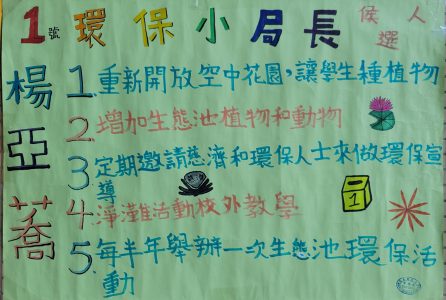 1號環保小局長候選人
楊亞蕎
1.重新開放空中花園,讓學生種植物
2.增加生態池植物和動物
3.定期邀請慈濟和環保人士來做環保宣
導
4.淨灘活動校外教學
5.每半年舉辦一次生態池環保活
動
1